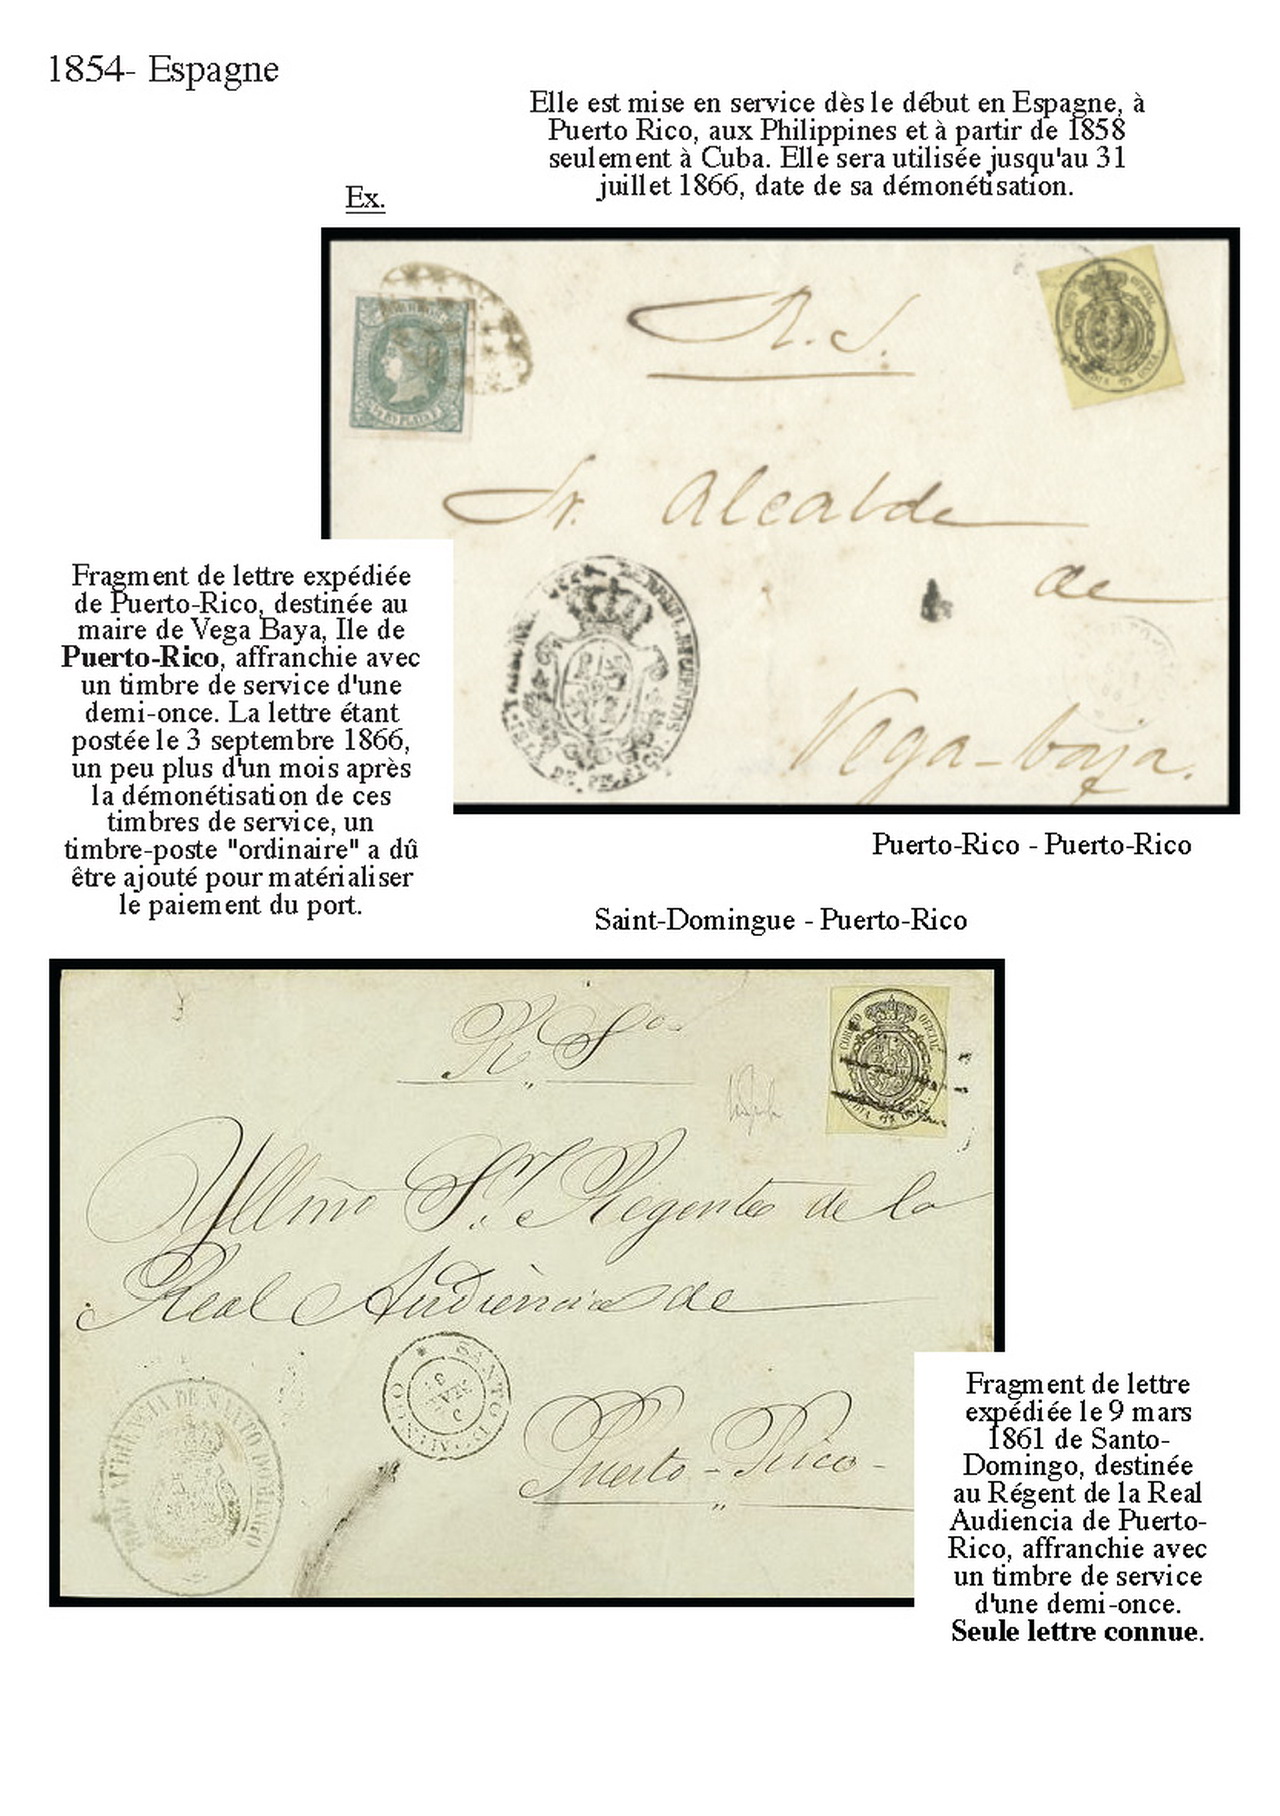 1854- Espagne
Elle est mise en service dès le début en Espagne, à
Puerto Rico, aux Philippines et à partir de 1858
seulement à Cuba. Elle sera utilisée jusqu'au 31
juillet 1866, date de sa démonétisation.
Ex.
R. S.
CORREO OFICIAL
MEDIA ONZA
Sr. Alcalde
de
Vega-baja.
Fragment de lettre expédiée
de Puerto-Rico, destinée au
maire de Vega Baya, Ile de
Puerto-Rico, affranchie avec
un timbre de service d'une
demi-once. La lettre étant
postée le 3 septembre 1866,
un peu plus d'un mois après
la démonétisation de ces
timbres de service, un
timbre-poste "ordinaire" a dû
être ajouté pour matérialiser
le paiement du port.
Puerto-Rico - Puerto-Rico
Saint-Domingue - Puerto-Rico
R. S.
CORREO OFICIAL
MEDIA ONZA
Yllmo Sr. Regente de la
Real Audiencia de
SANTO DOMINGO
REAL AUDIENCIA DE SANTO DOMINGO
Puerto-Rico-
Fragment de lettre
expédiée le 9 mars
1861 de Santo-
Domingo, destinée
au Régent de la Real
Audiencia de Puerto-
Rico, affranchie avec
un timbre de service
d'une demi-once.
Seule lettre connue.